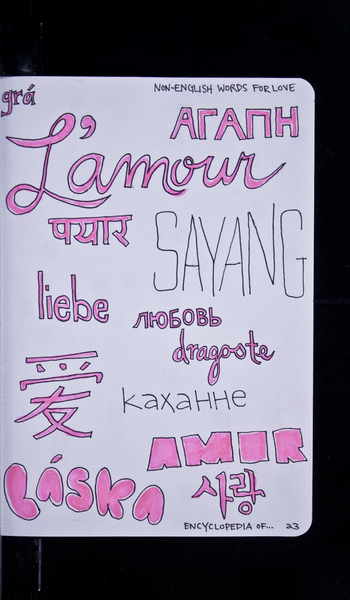 NON-ENGLISH WORDS FOR LOVE
grá
ΑΓΑΠΗ
L'amour
पयार
SAYANG
liebe
любовь
dragoste
爱
каханне
AMOR
LáSKA
사랑
ENCYCLOPEDIA OF... 23